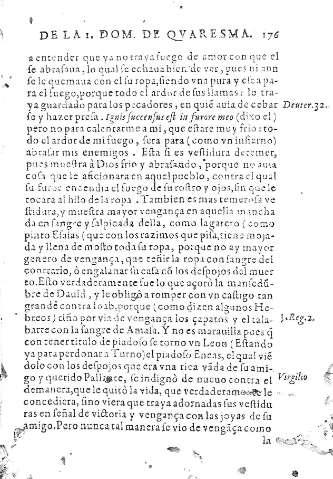 DE LA I. DOM. DE QVARESMA. 176
a entender que ya no traya fuego de amor con que el
se abrasaua, lo qual se echaua bien de ver, pues ni aun
se le quemaua con el su ropa, siendo vna pura y esca pa-
ra el fuego, porque todo el ardor de sus llamas lo tra-
ya guardado para los pecadores, en quiē auia de cebar
se y hazer presa. Ignis succensus est in furore meo (dixo el)
Deuter. 32.
pero no para calentarme a mi, que estare muy frio, to-
do el ardor de mi fuego, sera para (como vn infierno)
abrasar mis enemigos. Esta si es vestidura de temer,
pues muestra à Dios frio y abrasando, porque no auia
cosa que le aficionara en aquel pueblo, contra el qual
su furor encendia el fuego de su rostro y ojos, sin que le
tocara al hilo de la ropa. Tambien es mas temerosa ve
stidura, y muestra mayor vengança en aquella mancha
da en sangre y salpicada della, como lagarero (como
pinto Esaias) que con los razimos que pisa, tiene moja-
da y llena de mosto toda su ropa, porque no ay mayor
genero de vengança, que teñir la ropa con sangre del
contrario, ò engalanar su casa cō los despojos del muer
to. Esto verdaderamente fue lo que açorò la mansedū-
bre de Dauid, y le obligò a romper con vn castigo tan
grande contra Ioab, porque (como dizen algunos He-
breos) tiño por via de vengança los çapatos y el tala-
3. Reg. 2.
barte con la sangre de Amasa. Y no es marauilla pues q̄
con tener titulo de piadoso se torno vn Leon (Estando
ya para perdonar a Turno) el piadoso Eneas, el qual viē
dolo con los despojos que era vna rica vāda de su ami-
go y querido Pallante, se indignò de nueuo contra el
Virgilio
demanera, que le quitò la vida, que verdaderamente le
concediera, sino viera que traya adornadas sus vestidu
ras en señal de victoria y vengança con las joyas de su
amigo. Pero nunca tal manera se vio de vengāça como
la